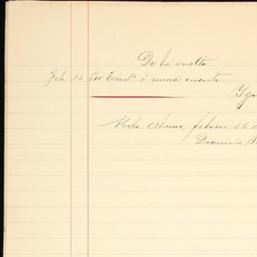 De la vuelta
Feb. 16 Por Efvo. á nueva cuenta
Ygu
Alamo, febrero 16 d
Dionicio